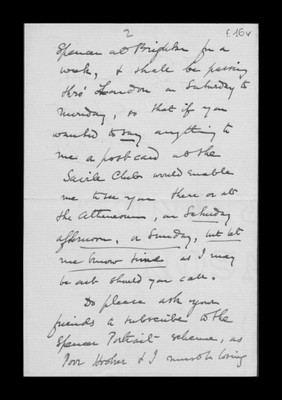 2
f.16v
Spencer at Brighton for a
week, & shall be passing
thro' London on Saturday to
Monday, so that if you
wanted to say anything to
me a post card at the
Savile Club would enable
me to see you there or at
the Athenaeum, on Saturday
afternoon, or Sunday, but let
me know time as I may
be out should you call.
Do please ask your
friends to subscribe to the
Spencer Portrait scheme, as
poor Hooker & I